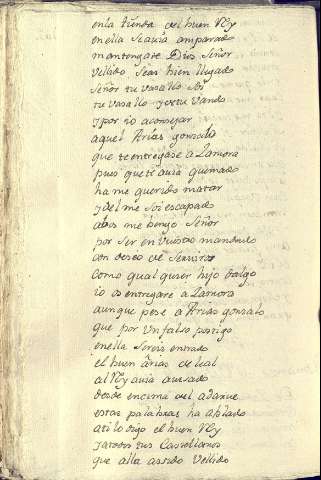 en la tienda del buen Rey
en ella se auia amparado
mantengate Dios Señor
Vellido seas bien llegado
Señor tu vasallo soi
tu vasallo y de tu vando
y por io aconsejar
a aquel Arias gonsalo
que te entregase a Zamora
pues que te auia quitado
ha me querido matar
y del me soi escapado
a bos me bengo Señor
por ser en vuestro mandado
con deseo de seruiros
como qual quier hijo dalgo
io os entregare a Zamora
aunque pese a Arias gonsalo
que por un falso postigo
en ella sereis entrado
el buen Arias de leal
al Rey auia auisado
desde encima del adarue
estas palabras ha ablado
a ti lo digo el buen Rey
y a todos tus Castellanos
que alla a salido Vellido